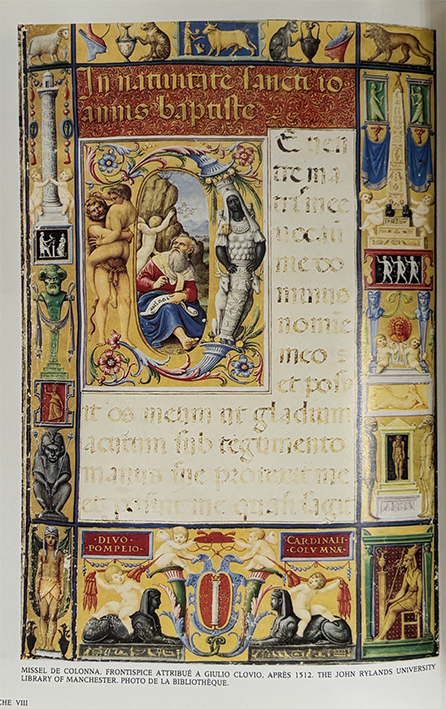 In natiuitate sancti io
annis baptiste
E uen
tre ma
tris mee
me do
minus
nomine
meo s
et posu
it os meum ut gladium
acutum sub tegumento
manus sue protexit me
et posuit me quasi sagit
·DIVO·
POMPEIO·
CARDINALI·
COLVMNÆ·
MISSEL DE COLONNA, FRONTISPICE ATTRIBUÉ A GIULIO CLOVIO, APRÈS 1512. THE JOHN RYLANDS UNIVERSITY
LIBRARY OF MANCHESTER. PHOTO DE LA BIBLIOTHÈQUE.
CHE VIII